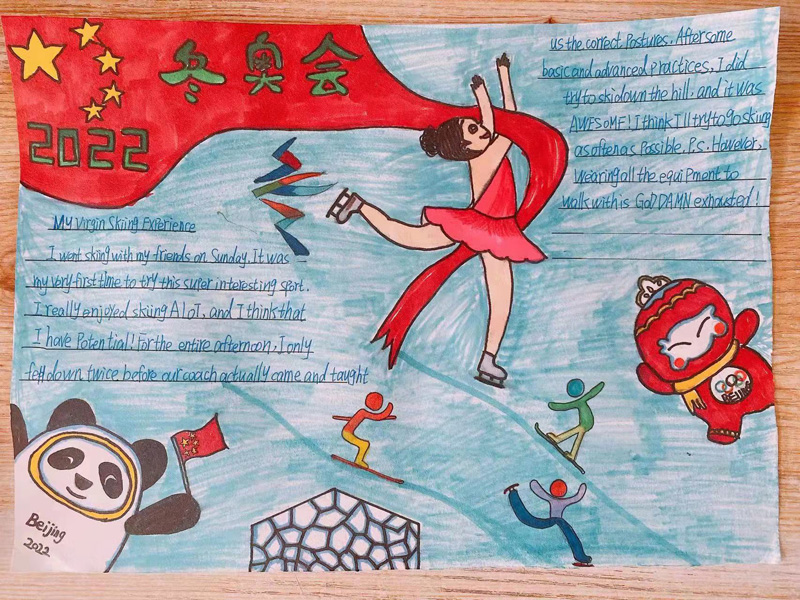 冬奥会
2022
My Virgin Skiing Experience
I went skiing with my friends on Sunday. It was
my very first time to try this super interesting sport.
I really enjoyed skiing A loT, and I think that
I have Potential! For the entire afternoon, I only
fell down twice before our coach actually came and taught
us the correct Postures. After some
basic and advanced Practices, I did
try to ski down the hill. and it was
AWESOME! I think I'll try to go skiing
as often as Possible. P.S. However,
wearing all the equiPment to
walk with is GoD DAMN exhausted!
BEIJING
Beijing
2022